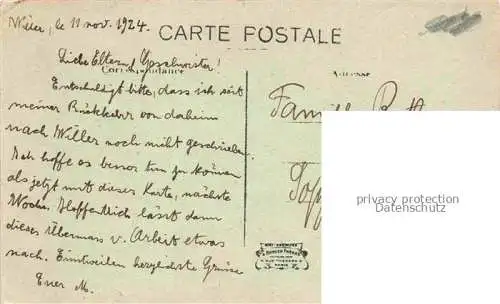 Willer, le 11 nov. 1924.
CARTE POSTALE
Liebe Eltern u. Geschwister!
Correspondance
Adresse
Entschuldigt bitte, dass ich seit
meiner Rückkehr von daheim
nach Willer noch nicht geschrieben.
Ich hoffe es besser tun zu können
als jetzt mit dieser Karte, nächste
Woche. Hoffentlich lässt dann
dieses Übermass v. Arbeit etwas
nach. Einstweilen herzlichste Grüsse
Euer M.
Famille
privacy protection
Datenschutz